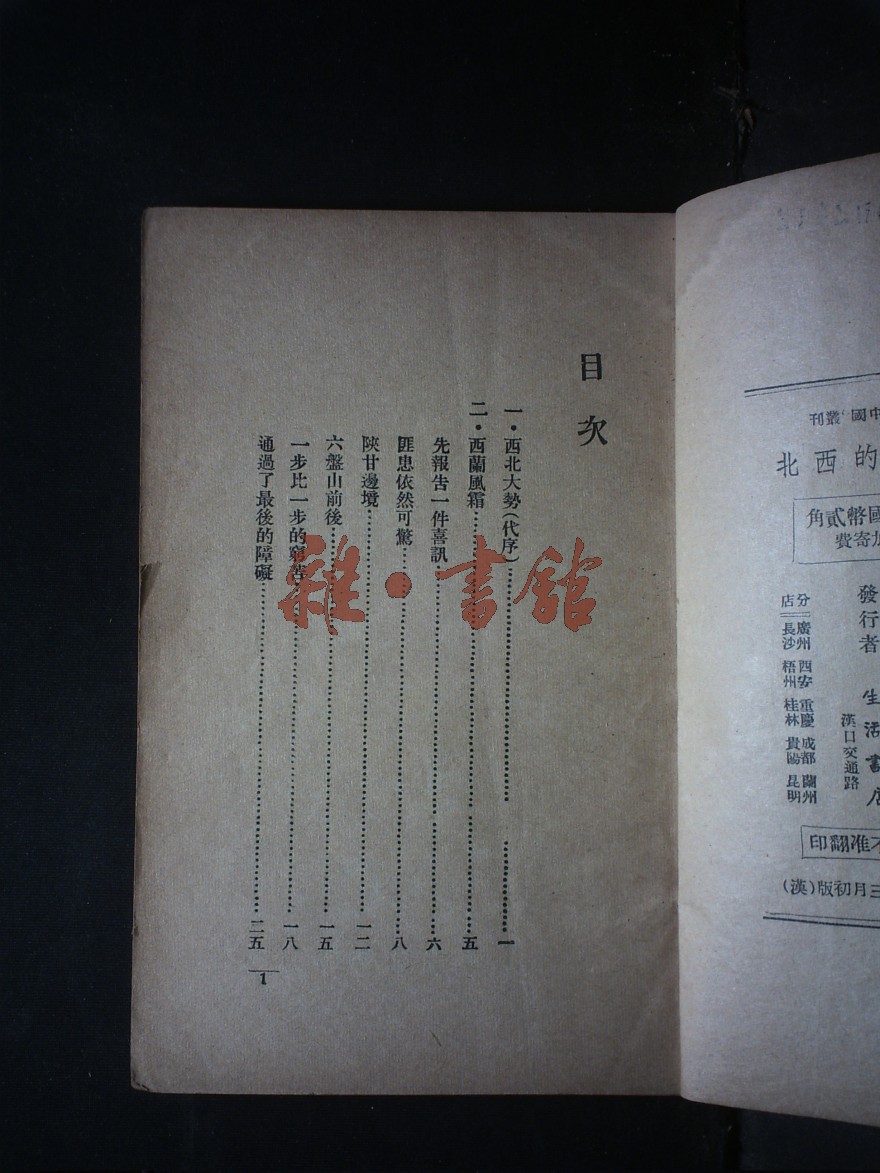 目次
一・西北大勢（代序）……一
二・西蘭風霜……五
先報告一件喜訊……六
匪患依然可驚……八
陝甘邊境……一二
六盤山前後……一五
一步比一步的窮苦……一八
通過了最後的障礙……二五
1
雜・書館
中國'叢刊
的西北
國幣貳角
加寄費
發行者
生活書店
漢口交通路
分店
廣州 西安 重慶 成都 蘭州
長沙 梧州 桂林 貴陽 昆明
不准翻印
三月初版（漢）